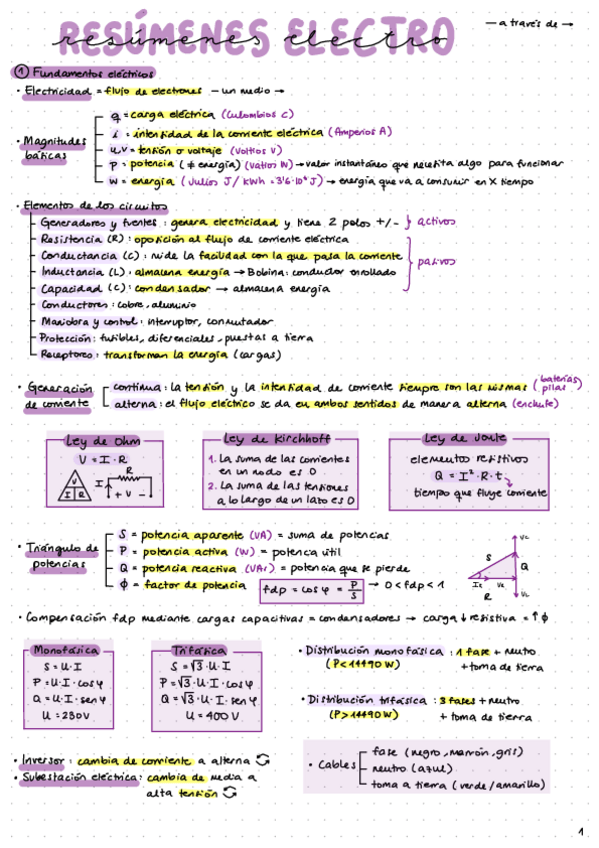 RESÚMENES ELECTRO
resúmenes electro
— a través de →
① Fundamentos eléctricos
· Electricidad = flujo de electrones — un medio →
· Magnitudes básicas
q = carga eléctrica (Culombios C)
i = intensidad de la corriente eléctrica (Amperios A)
u,v = tensión o voltaje (Voltios V)
P = potencia (≠ energía) (Vatios W) → valor instantáneo que necesita algo para funcionar
W = energía (Julios J / KWh = 3'6·10⁶ J) → energía que va a consumir en X tiempo
· Elementos de los circuitos
Generadores y fuentes: genera electricidad y tiene 2 polos +/- } activos
Resistencia (R): oposición al flujo de corriente eléctrica
Conductancia (C): mide la facilidad con la que pasa la corriente
Inductancia (L): almacena energía → Bobina: conductor enrollado
Capacidad (C): condensador → almacena energía
pasivos
Conductores: cobre, aluminio
Maniobra y control: interruptor, conmutador
Protección: fusibles, diferenciales, puestas a tierra
Receptores: transforman la energía (cargas)
· Generación de corriente
continua: la tensión y la intensidad de corriente siempre son las mismas (baterías, pilas)
alterna: el flujo eléctrico se da en ambos sentidos de manera alterna (enchufe)
Ley de Ohm
V = I · R
V
I R
I
R
+ V -
Ley de Kirchhoff
1. La suma de las corrientes
en un nodo es 0
2. La suma de las tensiones
a lo largo de un lazo es 0
Ley de Joule
elementos resistivos
Q = I² · R · t
tiempo que fluye corriente
· Triángulo de potencias
S = potencia aparente (VA) = suma de potencias
P = potencia activa (W) = potencia útil
Q = potencia reactiva (VAr) = potencia que se pierde
ϕ = factor de potencia
fdp = cos φ = P/S
→ 0 < fdp < 1
S
Q
R
· Compensación fdp mediante cargas capacitivas = condensadores → carga ↓ resistiva = ↑ ϕ
Monofásica
S = U · I
P = U · I · cos φ
Q = U · I · sen φ
U = 230V
Trifásica
S = √3 · U · I
P = √3 · U · I · cos φ
Q = √3 · U · I · sen φ
U = 400V
· Distribución monofásica: 1 fase + neutro
(P < 14490 W) + toma de tierra
· Distribución trifásica: 3 fases + neutro
(P > 14490 W) + toma de tierra
· Inversor: cambia de corriente a alterna
· Subestación eléctrica: cambia de media a
alta tensión
· Cables
fase (negro, marrón, gris)
neutro (azul)
toma a tierra (verde/amarillo)
1